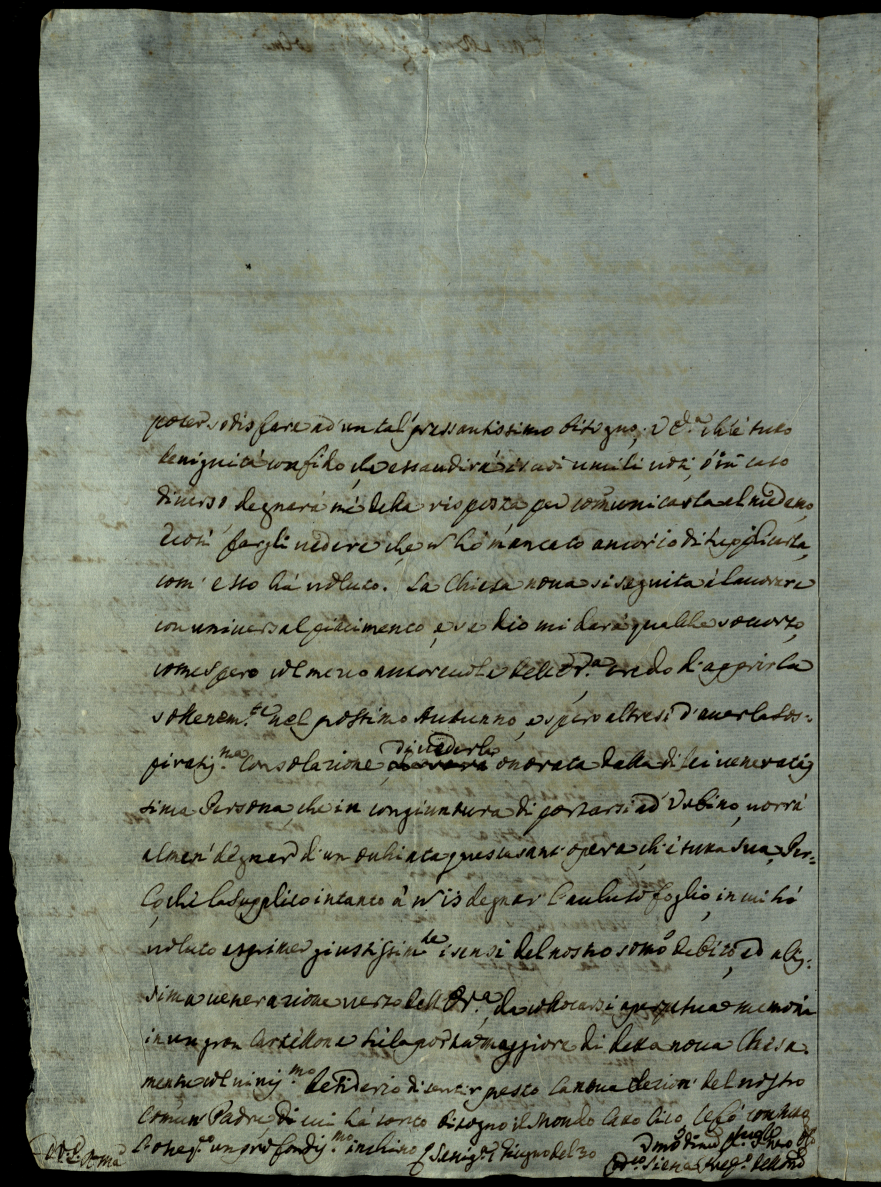 poter sodisfare ad un tal' pressantissimo bisogno; V E.ª ch'è tutto
benignità confido, che essaudirà i suoi umili voti, ò in caso
diverso degnerà mè della risposta per comunicarla al medemo,
e così fargli vedere, che ñ hò mancato ancor'io di supplicarla,
com' esso hà voluto. La Chiesa nova si seguita à lavorare
con universal piacimento, e se Dio mi darà qualche soccorso,
come spero col mezzo autorevole dell'E.V.ª credo d'apprirla
sollenem.te nel prossimo Autunno, e spero altresì d'aver la sos=
piratis.ma Consolazione di vederla onorata dalla di lei veneratis
sima Persona che in congiuntura di portarsi ad Urbino, vorrà
almen' degnar d'un ochiata questa sant' opera, ch'è tutta Sua, Per=
lo che la supplico intanto à ñ isdegnar l'accluso foglio, in cui hò
voluto esprimer giustissim.te i sensi del nostro sommo debito, ed altis=
sima venerazione verso dell'E.V.ª, da collocarsi à perpetua memoria
in un gran Cartellone sù la porta maggiore di detta nova Chiesa.
mentre col vivis.mo desiderio di sentir presto la nova elezion' del nostro
Comun Padre di cui hà tanto bisogno il Mondo
l'ossequio un profondis.mo inchino Senig.a Giugno del 30